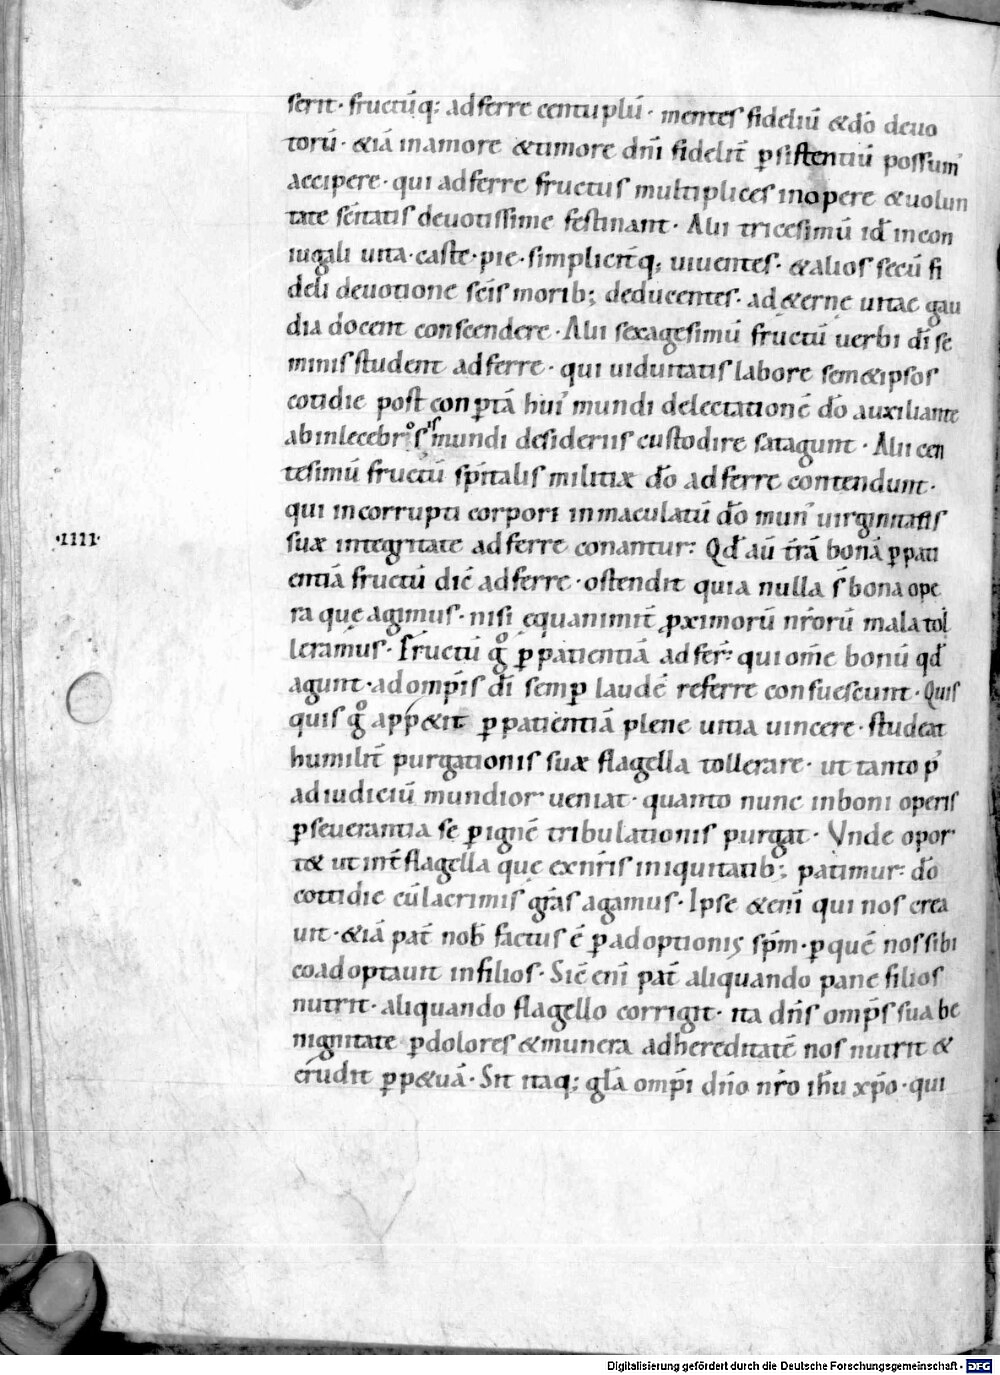 serit· fructūq; adferre centuplū· mentes fidelíū &dō deuo
torū· &iā inamore &timore dnī fidelit̄ ꝑsistentiū possum᾽
accipere· qui adferre fructus multiplices inopere &uolun
tate sc̄itatis deuotissime festinant· Alii tricesimū id̄ incon
iugali uita· caste· pie· simplicit̄q; uiuentes· &alios secū fi
deli deuotione sc̄is morib; deducentes· ad&erne uitae gau
dia docent conscendere· Alii sexagesimū fructū uerbi dī se
minis student adferre· qui uiduitatis labore sem&ipsos
cotidie post conptā hui᾽ mundi delectationē dō auxiliante
abinlecebrosis mundi desideriis custodire satagunt· Alii cen
tesimū fructū sp̄italis militiæ dō adferre contendunt·
qui incorrupti corpori inmaculatū dō mun᾽ uirginitatis
·IIII·
suæ integritate adferre conantur: Qd̄ aū t̄rā bonā ꝑpati
entiā fructū dic̄ adferre· ostendit quia nulla s̄ bona ope
ra que agimus· nisi ęquanimit̄ ꝓximorū nr̄orū mala tol
leramus· Fructū gͦ ꝑ patientiā adfer̄: qui om̄e bonū qd̄
agunt· adomp̄is dī semꝑ laudē referre consuescunt· Quis
quis gͦ app&it ꝑ patientiā plene uitia uincere· studeat
humilit̄ purgationis suæ flagella tollerare· ut tanto p᾽
adiudiciū mundior ueniat· quanto nunc inboni operis
ꝑseuerantia se ꝑignē tribulationis purgat· Vnde opor
t& ut int̄ flagella que exnr̄is iniquitatib; patimur: dō
cottidie cū lacrimis gr̄as agamus· Ipse &enī qui nos crea
uit· &iā pat̄ nob̄ factus ē ꝑadoptionis sp̄m· ꝑquē nos sibi
coadoptauit infilios· Sic̄ enī pat̄ aliquando pane filios
nutrit· aliquando flagello corrigit· ita dn̄s omp̄s sua be
nignitate ꝑdolores &munera adhereditatē nos nutrit &
erudit ꝑp&uā· Sit itaq; gl̄a omp̄i dn̄o nr̄o ih̄u xp̄o· qui
Digitalisierung gefördert durch die Deutsche Forschungsgemeinschaft - DFG